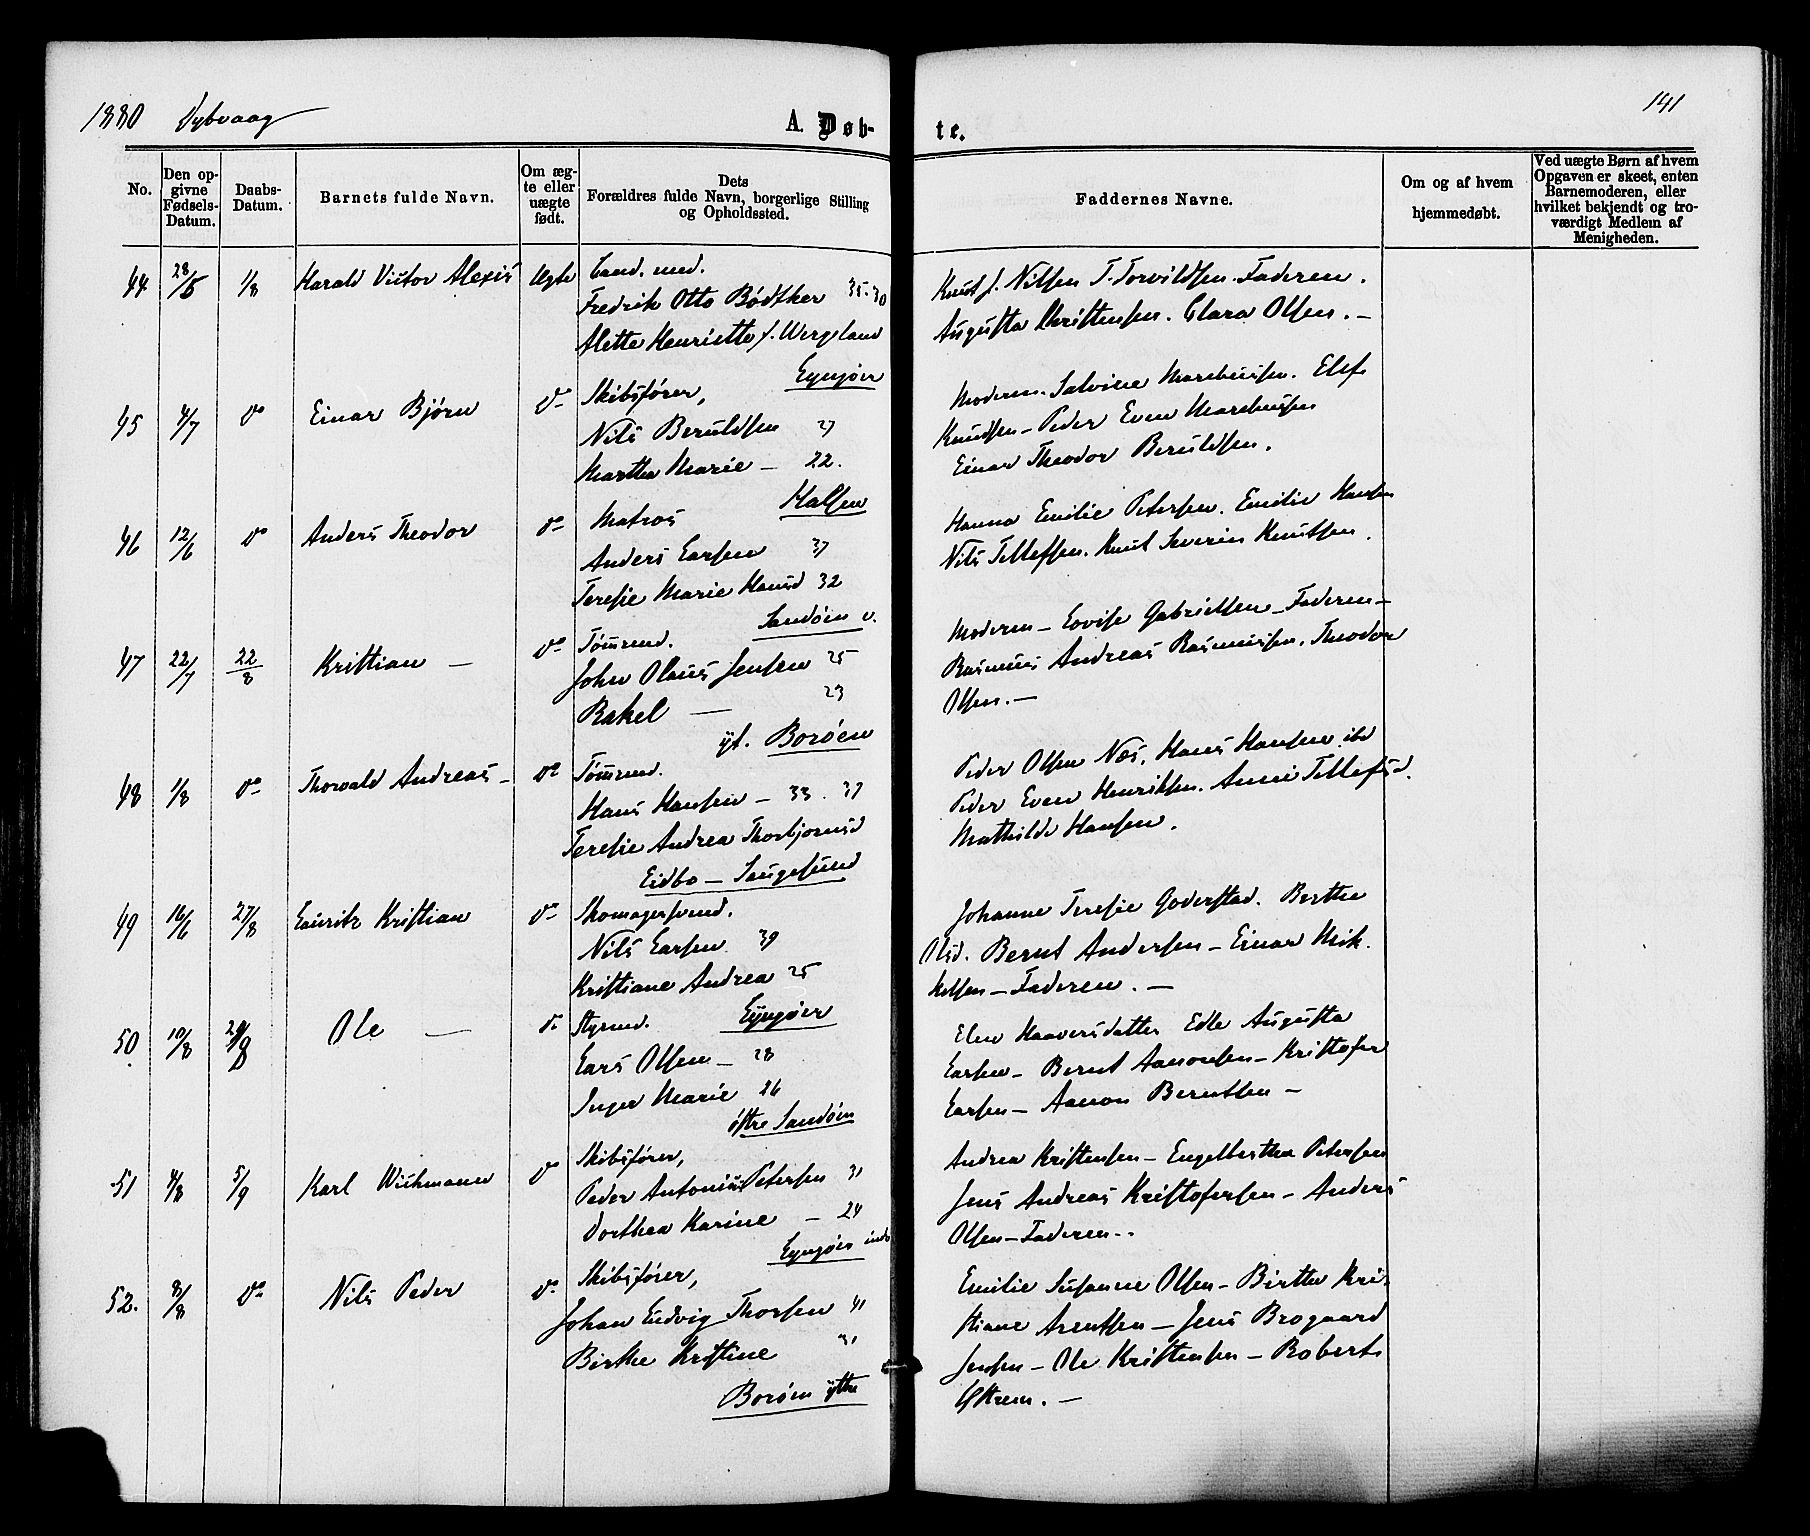 1880 Dybvaag
A. Døb-
te.
141
No.
Den op-
givne
Fødsels-
Datum.
Daabs-
Datum.
Barnets fulde Navn.
Om æg-
te eller
uægte
født.
Dets
Forældres fulde Navn, borgerlige Stilling
og Opholdssted.
Faddernes Navne.
Om og af hvem
hjemmedøbt.
Ved uægte Børn af hvem
Opgaven er skeet, enten
Barnemoderen, eller
hvilket bekjendt og tro-
værdigt Medlem af
Menigheden.
44 28/5 1/8 Harald Victor Alexis Ægte Cand. med.
Fredrik Otto Bødtker 35-30
Alette Henriette f. Wergeland
Lyngøer
Knut J. Nilsen T. Torvildsen. Faderen.
Augusta Christensen. Clara Olsen. -
45 4/7 do Einar Bjørn do Skibsfører,
Nils Beruldsen 27
Martha Marie - 22.
Halsen
Moderen. Salvine Marcussen. Elef
Knudsen - Peder Even Marcussen
Einar Theodor Beruldsen.
46 12/6 do Anders Theodor do Matros
Anders Larsen 37
Teresie Marie Hansd 32
Sandøen v.
Hanna Emilie Petersen. Emilie Hansen
Nils Tellefsen. Knut Severin Knutsen.
47 22/7 22/8 Kristian - do Tømmrmd.
John Olaus Jensen 25
Rakel - 23
yt. Borøen
Moderen - Lovise Gabrielsen - Faderen -
Rasmus Andreas Rasmussen. Theodor
Olsen. -
48 1/8 do Thorvald Andreas - do Tømmrmd.
Hans Hansen - 33. 37
Teresie Andrea Thorbjørnsd
Eidbo - Saugesund
Peder Olsen Næs. Hans Hansen ibd
Peder Even Henriksen. Anne Tellefsd.
Mathilde Hansen.
49 16/6 27/8 Lauritz Kristian do Skomagersvend.
Nils Larsen. 39
Kristiane Andrea 25
Lyngøer
Johanne Teresie Goderstad. Berthe
Olsd. Bernt Andersen - Einar Mik-
kelsen - Faderen. -
50 10/8 29/8 Ole - do Styrmd.
Lars Olsen - 28
Inger Marie 26
østre Sandøen
Elen Haaversdatter Edle Augusta
Larsen - Bernt Aanonsen - Kristofer
Larsen - Aanon Berntsen -
51 4/8 5/9 Karl Wichmann do Skibsfører,
Peder Antonius Petersen 31
Dorthea Karine - 24
Lyngøer indr
Andrea Kristensen - Engelberthe Petersen
Jens Andreas Kristofersen - Anders
Olsen - Faderen. -
52. 8/8 do Nils Peder do Skibsfører,
Johan Ludvig Thorsen 41
Birthe Kristine 31
Borøen ytre
Emilie Susanne Olsen - Birthe Kri-
stiane Arentsen - Jens Brogaard
Jensen - Ole Kristensen - Robert